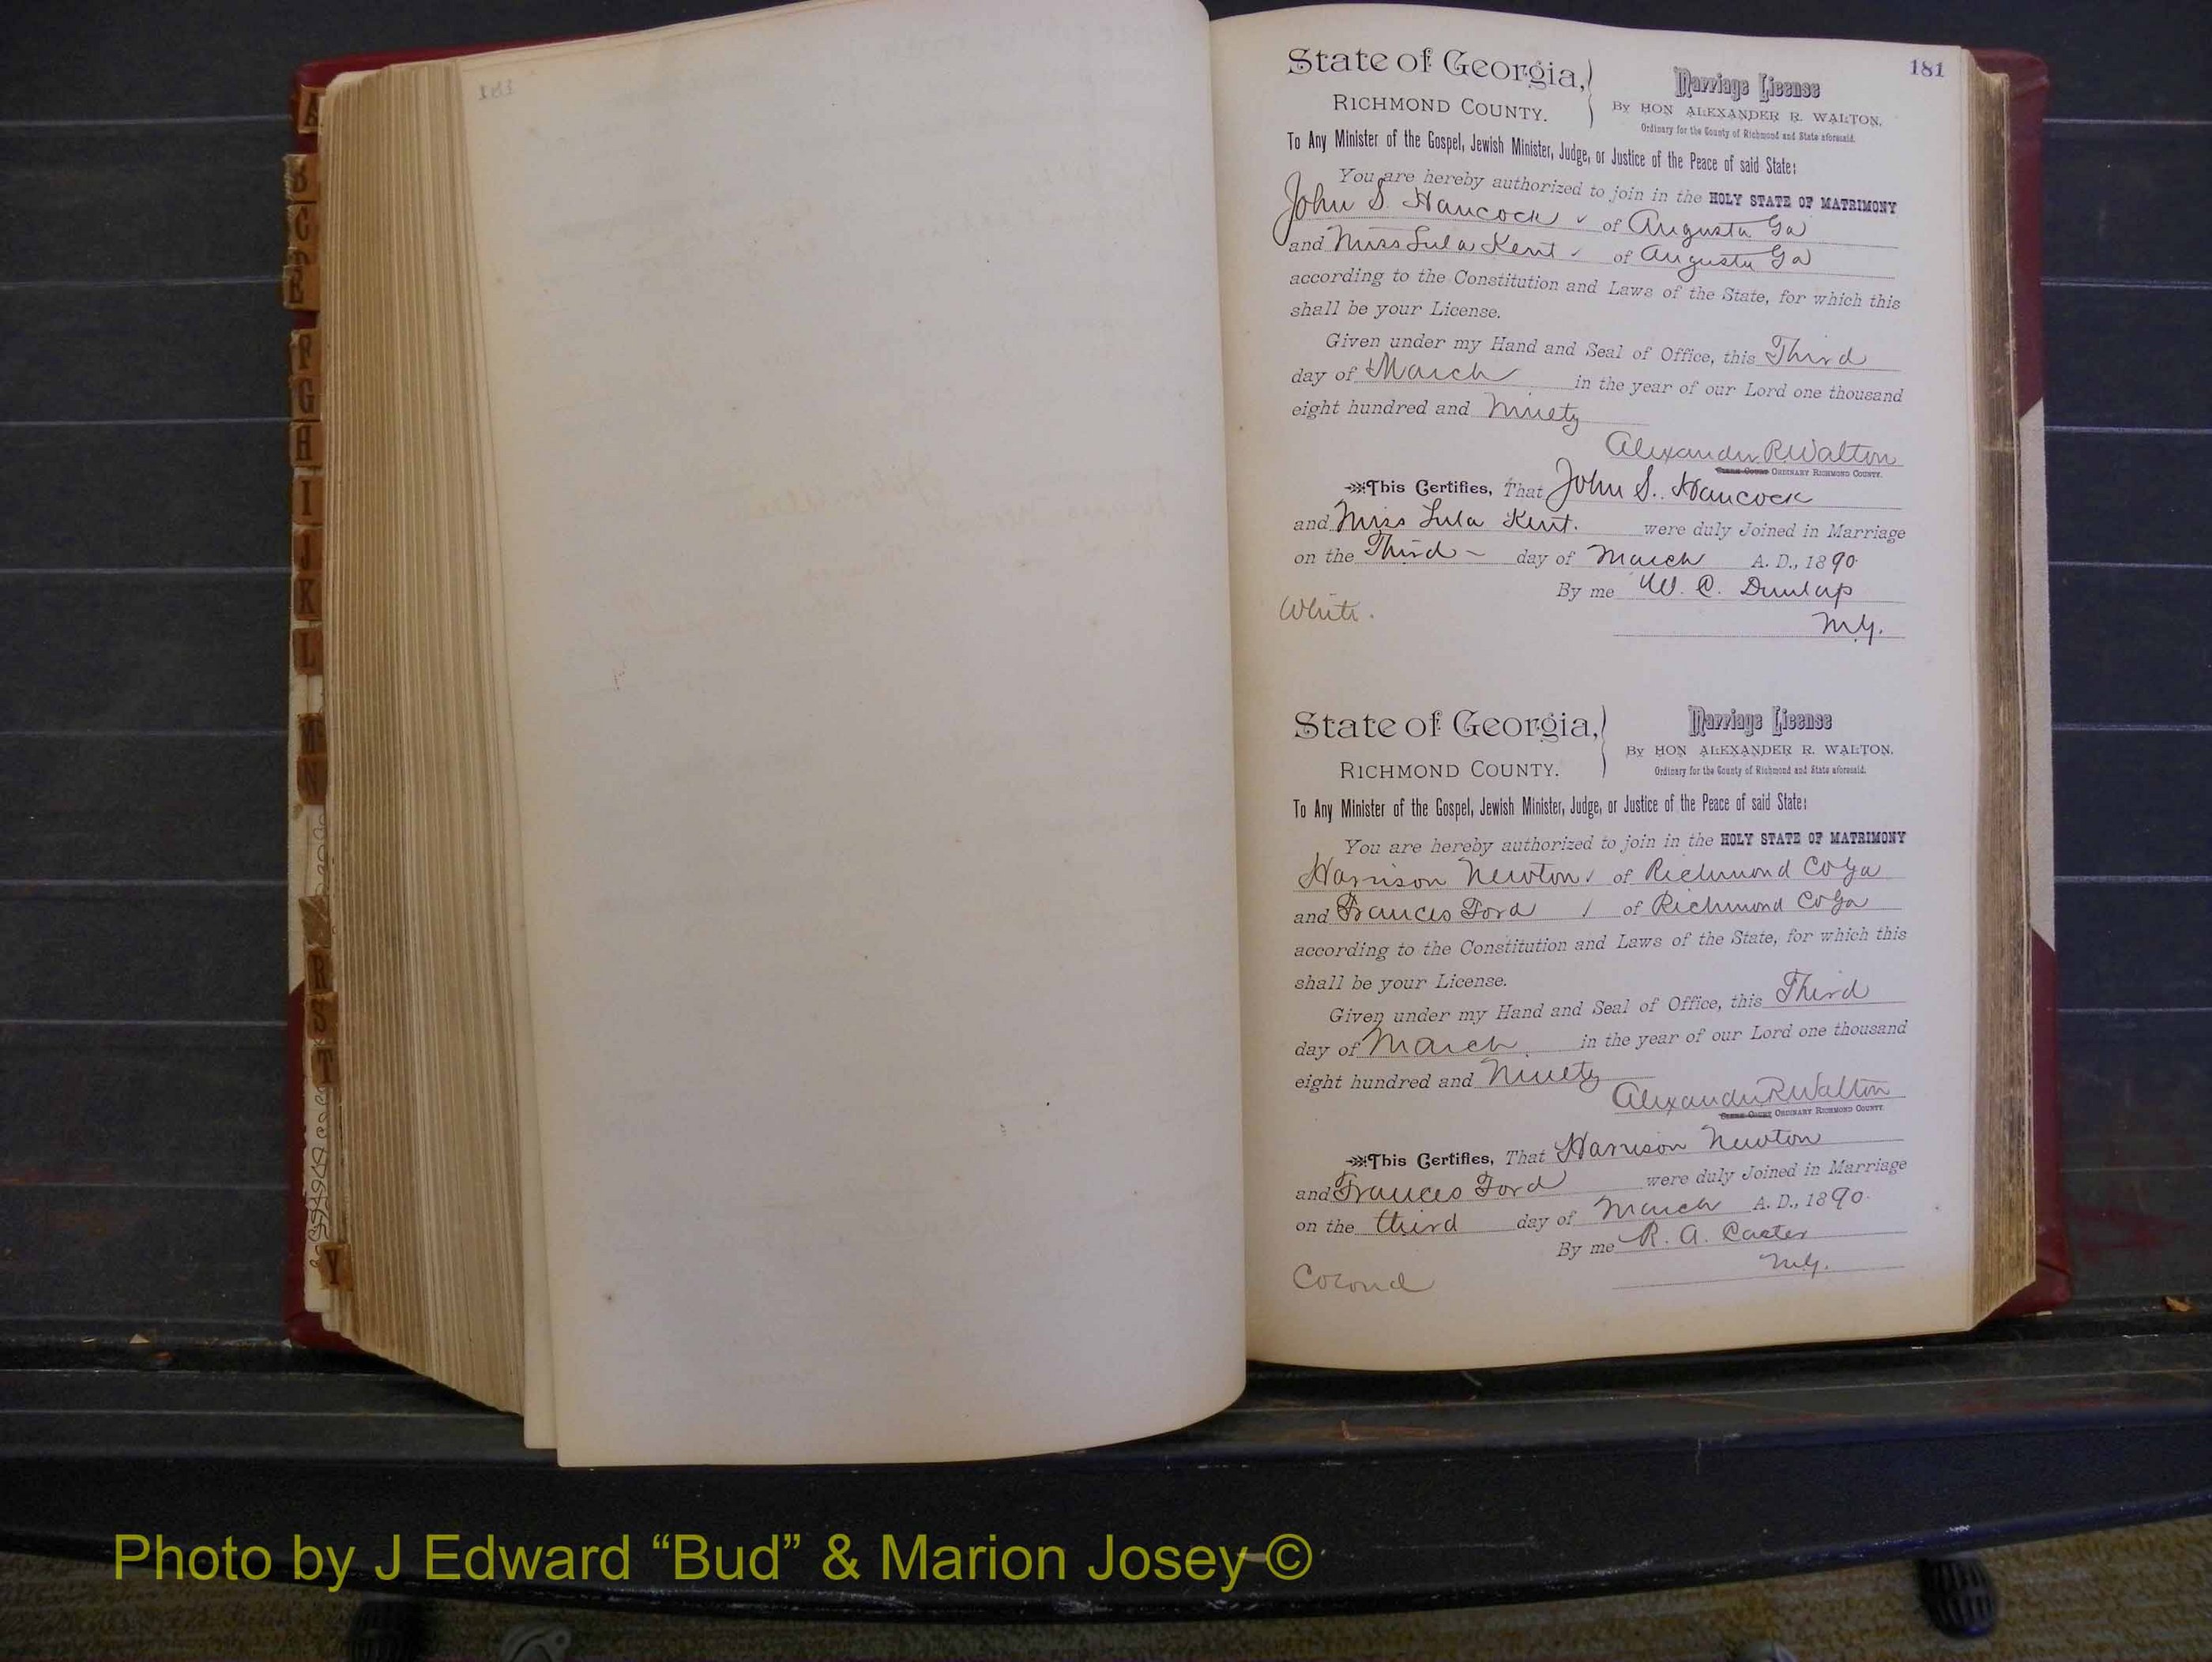 181
State of Georgia,
RICHMOND COUNTY.
Marriage License
By HON ALEXANDER R. WALTON,
Ordinary for the County of Richmond and State aforesaid.
To Any Minister of the Gospel, Jewish Minister, Judge, or Justice of the Peace of said State:
You are hereby authorized to join in the HOLY STATE OF MATRIMONY
John S. Hancock of Augusta Ga
and Miss Lula Kent of Augusta Ga
according to the Constitution and Laws of the State, for which this
shall be your License.
Given under my Hand and Seal of Office, this Third
day of March in the year of our Lord one thousand
eight hundred and Ninety
Alexander R Walton
Clerk Court ORDINARY RICHMOND COUNTY.
This Certifies, That John S. Hancock
and Miss Lula Kent. were duly Joined in Marriage
on the Third - day of March A. D., 1890
By me W. C. Dunlap
M.G.
White.
State of Georgia,
RICHMOND COUNTY.
Marriage License
By HON ALEXANDER R. WALTON.
Ordinary for the County of Richmond and State aforesaid.
To Any Minister of the Gospel, Jewish Minister, Judge, or Justice of the Peace of said State:
You are hereby authorized to join in the HOLY STATE OF MATRIMONY
Harrison Newton of Richmond Co Ga
and Frances Ford of Richmond Co Ga
according to the Constitution and Laws of the State, for which this
shall be your License.
Given under my Hand and Seal of Office, this Third
day of March in the year of our Lord one thousand
eight hundred and Ninety
Alexander R Walton
Clerk Court ORDINARY RICHMOND COUNTY.
This Certifies, That Harrison Newton
and Frances Ford were duly Joined in Marriage
on the third day of March A. D., 1890
By me R. A. Carter
M.G.
Colored
A
B
C
F
G
H
I
J
K
L
M
N
R
S
T
Y
Photo by J Edward “Bud” & Marion Josey ©